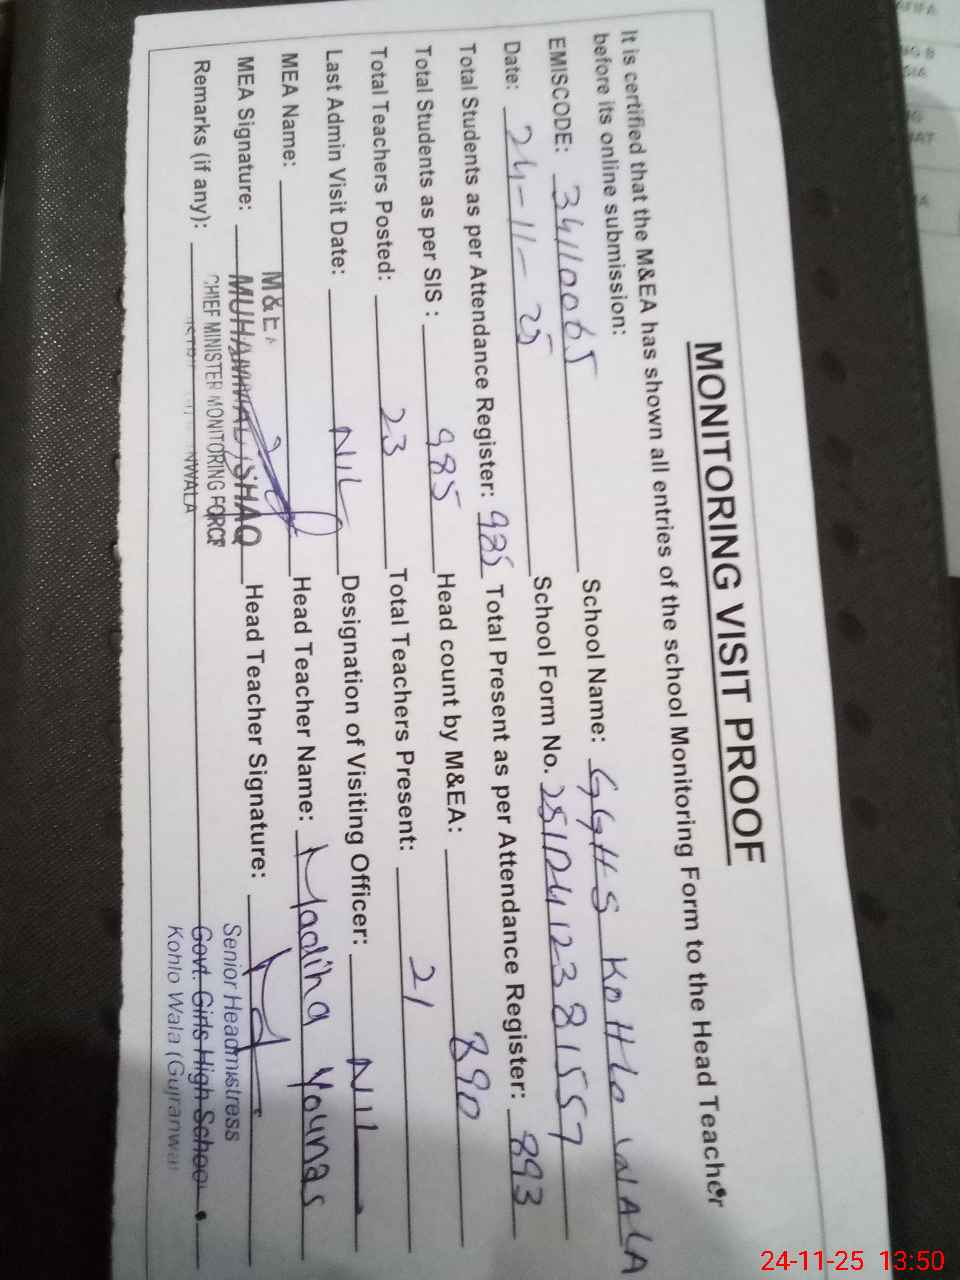 MONITORING VISIT PROOF
It is certified that the M&EA has shown all entries of the school Monitoring Form to the Head Teacher
before its online submission:
EMISCODE: 34110065 School Name: GGHS KOHLO WALA
Date: 24-11-25 School Form No. 251D41238157
Total Students as per Attendance Register: 985 Total Present as per Attendance Register: 893
Total Students as per SIS : 985 Head count by M&EA: 890
Total Teachers Posted: 23 Total Teachers Present: 21
Last Admin Visit Date: NIL Designation of Visiting Officer: NIL
MEA Name: M&EA Head Teacher Name: Madiha Younas
MEA Signature: MUHAMMAD ISHAQ Head Teacher Signature:
Remarks (if any): CHIEF MINISTER MONITORING FORCE
NWALA
Senior Headmistress
Govt. Girls High School
Kohlo Wala (Gujranwal
24-11-25 13:50